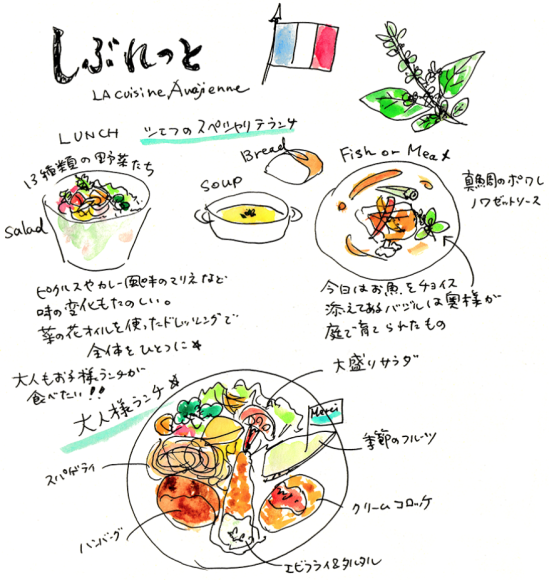 しぶれっと
LA cuisine Awajienne
LUNCH
シェフのスペシャリテランチ
13種類の野菜たち
Salad
Soup
Bread
Fish or Meat
真鯛のポワレ
ノワゼットソース
ピクルスやカレー風味のマリネなど
味の変化もたのしい。
菜の花オイルを使ったドレッシングで
全体をひとつに☆
今日はお魚をチョイス
添えてあるバジルは奥様が
庭で育てられたもの
大人もお子様ランチが
食べたい!!
大人様ランチ☆
大盛りサラダ
Merci
季節のフルーツ
スパゲティ
クリームコロッケ
ハンバーグ
エビフライ&タルタル